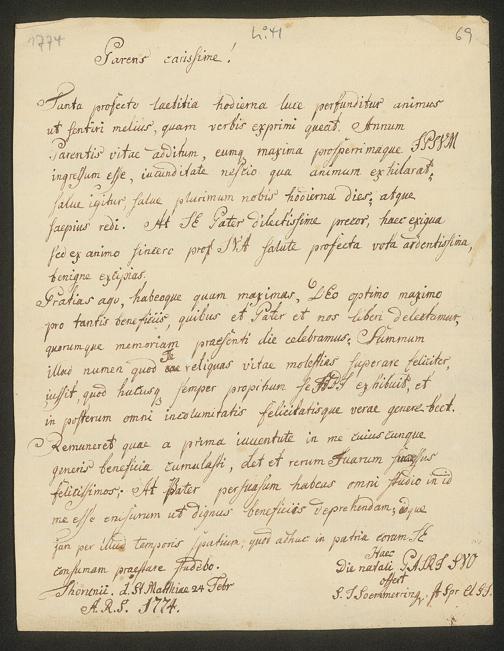 1774
69
Parens carissime!
Tanta profecto laetitia hodierna luce perfunditur animus
ut sentiri melius, quam verbis exprimi queat. Annum
Parentis vitae additum, eumq maxima prosperrimaque IPSVM
ingressum esse, iucunditate nescio qua animum exhilarat;
salve igitur, salve plurimum nobis hodierna dies, atque
saepius redi. At TE Pater dilectissime precor, haec exigua
sed ex animo sincero pro SVA salute profecta vota ardentissima,
benigne excipias.
Gratias ago, habeoque quam maximas, DEo optimo maximo
pro tantis beneficiis, quibus et Pater et nos liberi delectamur,
quorumque memoriam praesenti die celebramus; Summum
illud numen quod Te reliquas vitae molestias superare feliciter,
iussit, quod hucusq semper propitium se exhibuit, et
in posterum omni incolumitatis felicitatisque verae genere beet.
Remuneret quae a prima iuventute in me cuiuscunque
generis beneficia cumulasti, det et rerum Tuarum successus
felicissimos; At Pater persuasum habeas omni studio in id
me esse enisurum ut dignus beneficiis deprehendam, idque
per illud temporis spatium, quod adhuc in patria coram TE
consumam praestare studebo.
Haec
Thorunii. d. St. Matthiae 24 Febr
die natali PATRI SVO
offert
A.R.S. 1774.
S. T. Soemmerring.